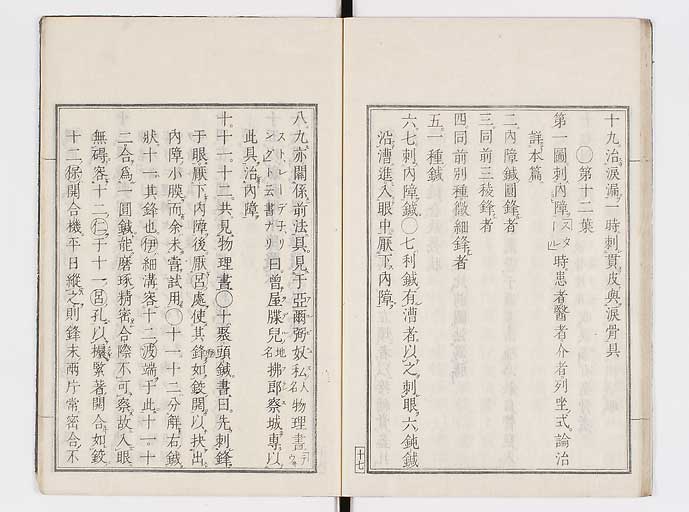 十九治淚漏一時刺貫皮與淚骨具
〇第十二葉
第一圖刺内障スタール時患者醫者介者列坐式論治
詳本篇
二内障鍼圓鋒者
三同前三稜鋒者
四同前別種微細鋒者
五一種鍼
六七刺内障鍼〇七利鍼有漕者以之刺眼六鈍鍼
沿漕進入眼中厭下内障
八九亦關係前法具見于亞爾弼奴私人名物理書
曰曾屋牒兒地名拂郎察城專以
此具治内障
十十一十二共見物理書〇十聚頭鍼書曰先刺鋒
于眼厭下内障後厭呂處使其鋒如鋏開以抉出
内障小膜而余未嘗試用〇十一十二分觧右鍼
狀十一其鋒也伊細溝容十二波端于此十一十
二合爲一圓鍼能磨琢精密合際不可察故入眼
無碍客十二仁于十一呂孔以緊著開合如鋏
十二保開合機平日縱之則鋒末兩片常密合不
十七